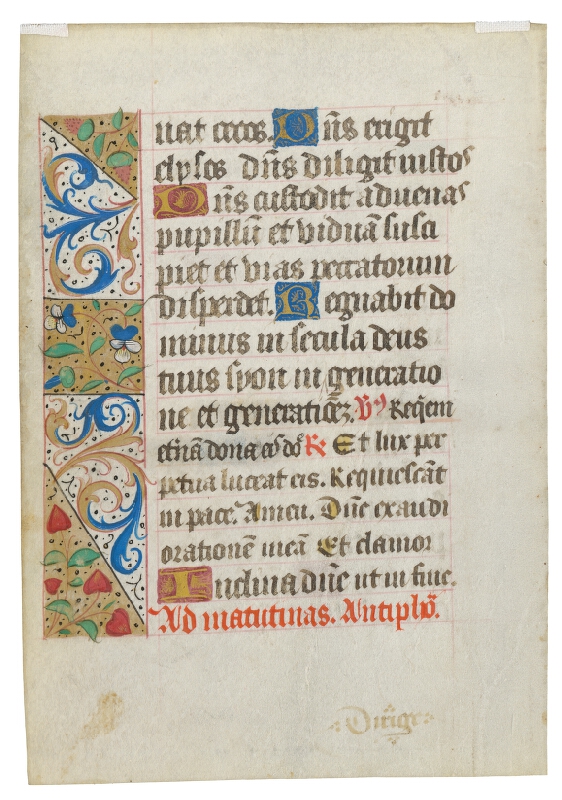 nat cecos. Dn̄s erigit
elysos dn̄s diligit iustos
Dn̄s custodit aduenas
pupillū et viduā susci
piet et vias peccatorum
disperdet. Regnabit do
minus in secula deus
tuus syon in generatio
ne et generationeꝫ. V̷ Req̄em
etnā dona eis dn̄e R̷ Et lux per
petua luceat eis. Requiescāt
in pace. Amen. Dn̄e exaudi
orationē meā Et clamor
Inclina dn̄e ut in fine.
Ad matutinas. Antiphō.
Dirige